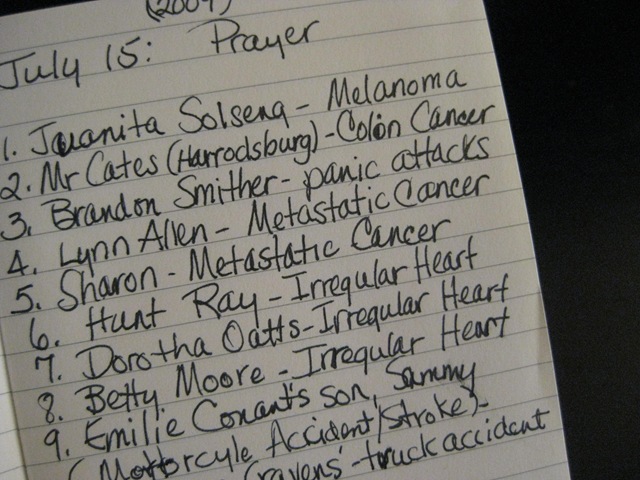 (2009)
July 15: Prayer
1. Juanita Solsena - Melanoma
2. Mr Cates (Harrodsburg) - Colon Cancer
3. Brandon Smither - panic attacks
4. Lynn Allen - Metastatic Cancer
5. Sharon - Metastatic Cancer
6. Hunt Ray - Irregular Heart
7. Dorotha Oatts - Irregular Heart
8. Betty Moore - Irregular Heart
9. Emilie Conant's son, Sammy
(Mottorcyle Accident/Stroke) -
Cravens' - truck accident